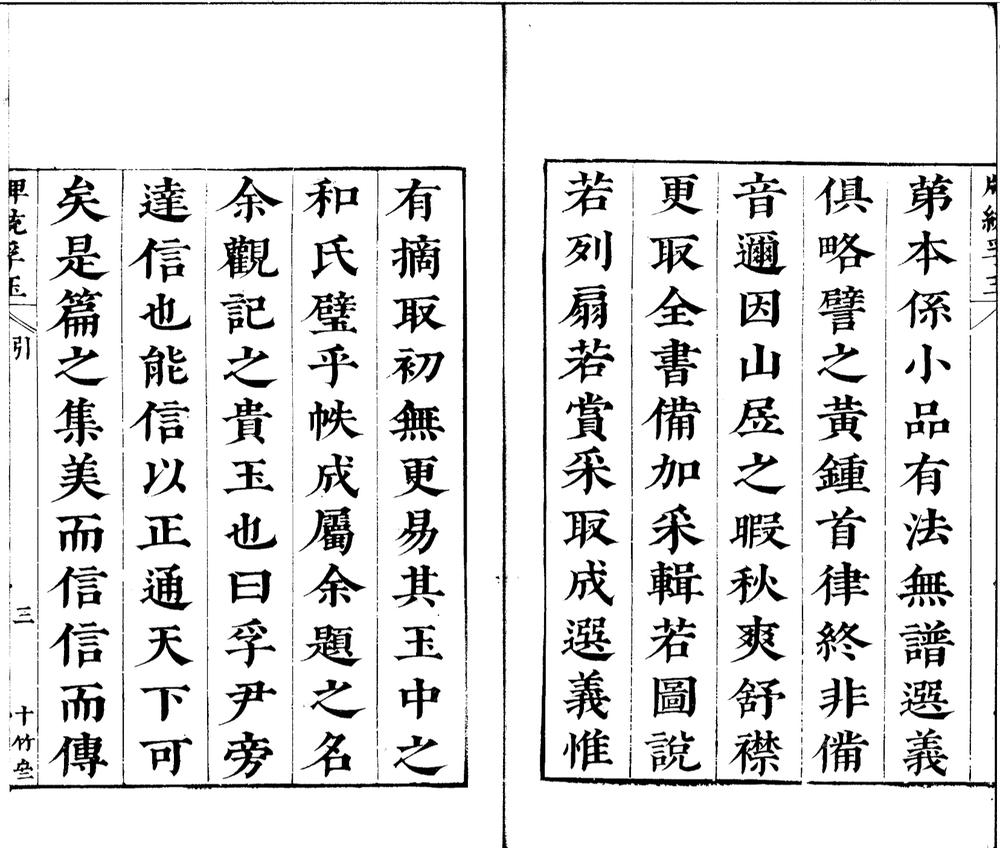 第本係小品有法無譜選義
俱略譬之黃鍾首律終非備
音邇因山居之暇秋爽舒襟
更取全書備加采輯若圖說
若列扇若賞采取成選義惟
有摘取初無更易其玉中之
和氏璧乎帙成屬余題之名
余觀記之貴玉也曰孚尹旁
達信也能信以正通天下可
矣是篇之集美而信信而傳
孚玉
引
三
十竹